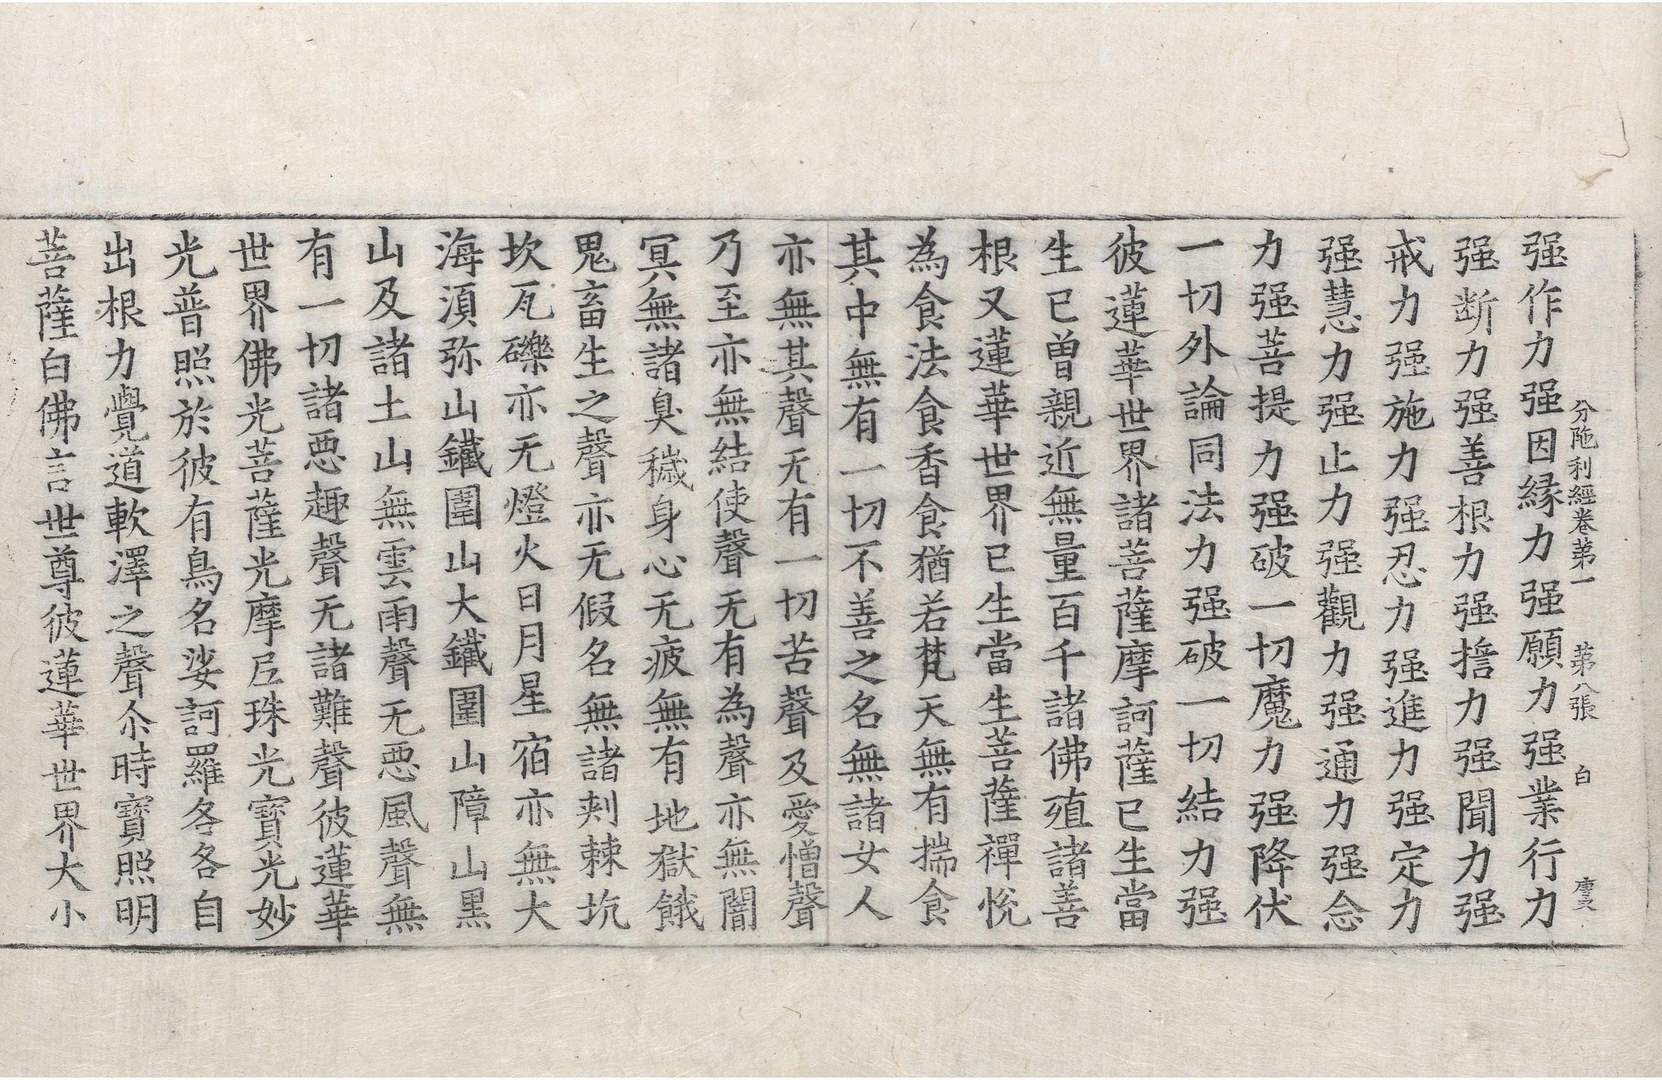 分陁利經卷第一　第八張　白
强作力强因縁力强願力强業行力
强断力强善根力强擔力强聞力强
戒力强施力强忍力强進力强定力
强慧力强止力强觀力强通力强念
力强菩提力强破一切魔力强降伏
一切外論同法力强破一切結力强
彼蓮華世界諸菩薩摩訶薩已生當
生已曾親近無量百千諸佛殖諸善
根又蓮華世界已生當生菩薩禪悅
為食法食香食猶若梵天無有揣食
其中無有一切不善之名無諸女人
亦無其聲无有一切苦聲及愛憎聲
乃至亦無結使聲无有為聲亦無闇
冥無諸臭穢身心无疲無有地獄餓
鬼畜生之聲亦无假名無諸刾棘坑
坎瓦礫亦无燈火日月星宿亦無大
海須弥山鐵圍山大鐵圍山障山黑
山及諸土山無雲雨聲无惡風聲無
有一切諸惡趣聲无諸難聲彼蓮華
世界佛光菩薩光摩尼珠光寶光妙
光普照於彼有鳥名娑訶羅各各自
出根力覺道軟澤之聲尒時寶照明
菩薩白佛言世尊彼蓮華世界大小